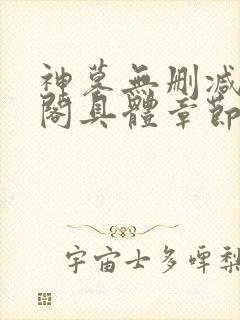 神墓無刪減
閣具體章節
宇宙士多啤梨